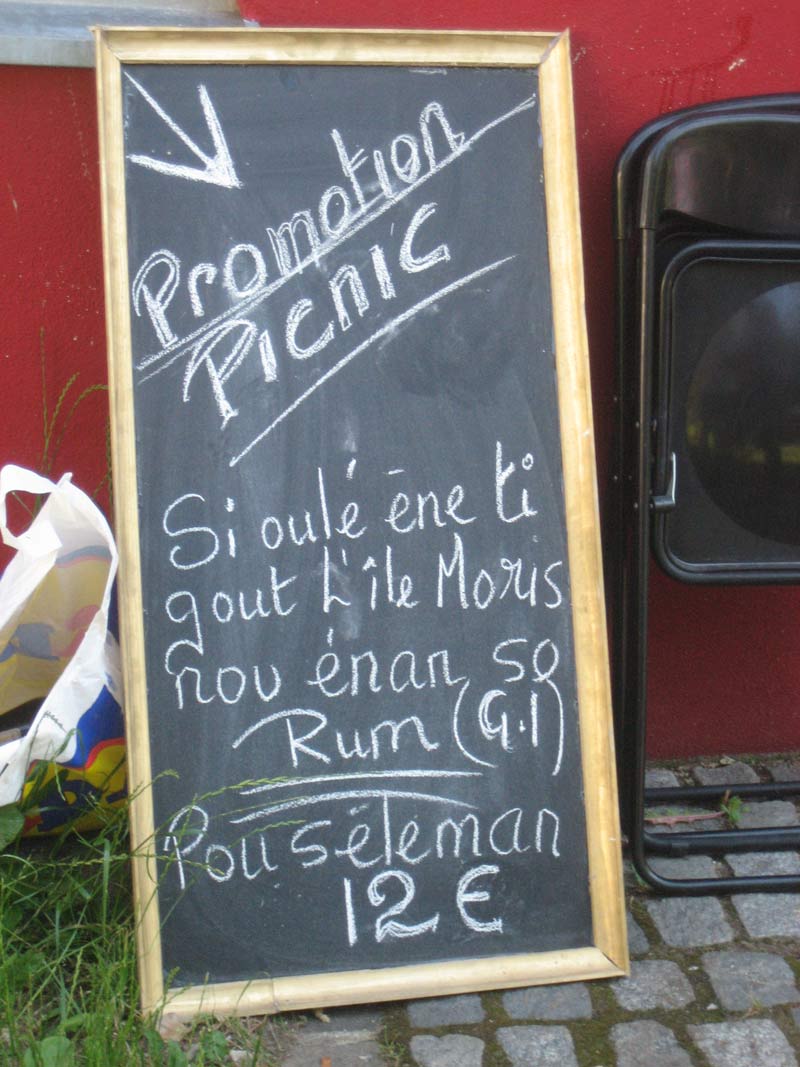 Promotion
Picnic
Si oulé éne ti
gout L'île Moris
nou énan so
Rum (G.1)
Pou séleman
12 €